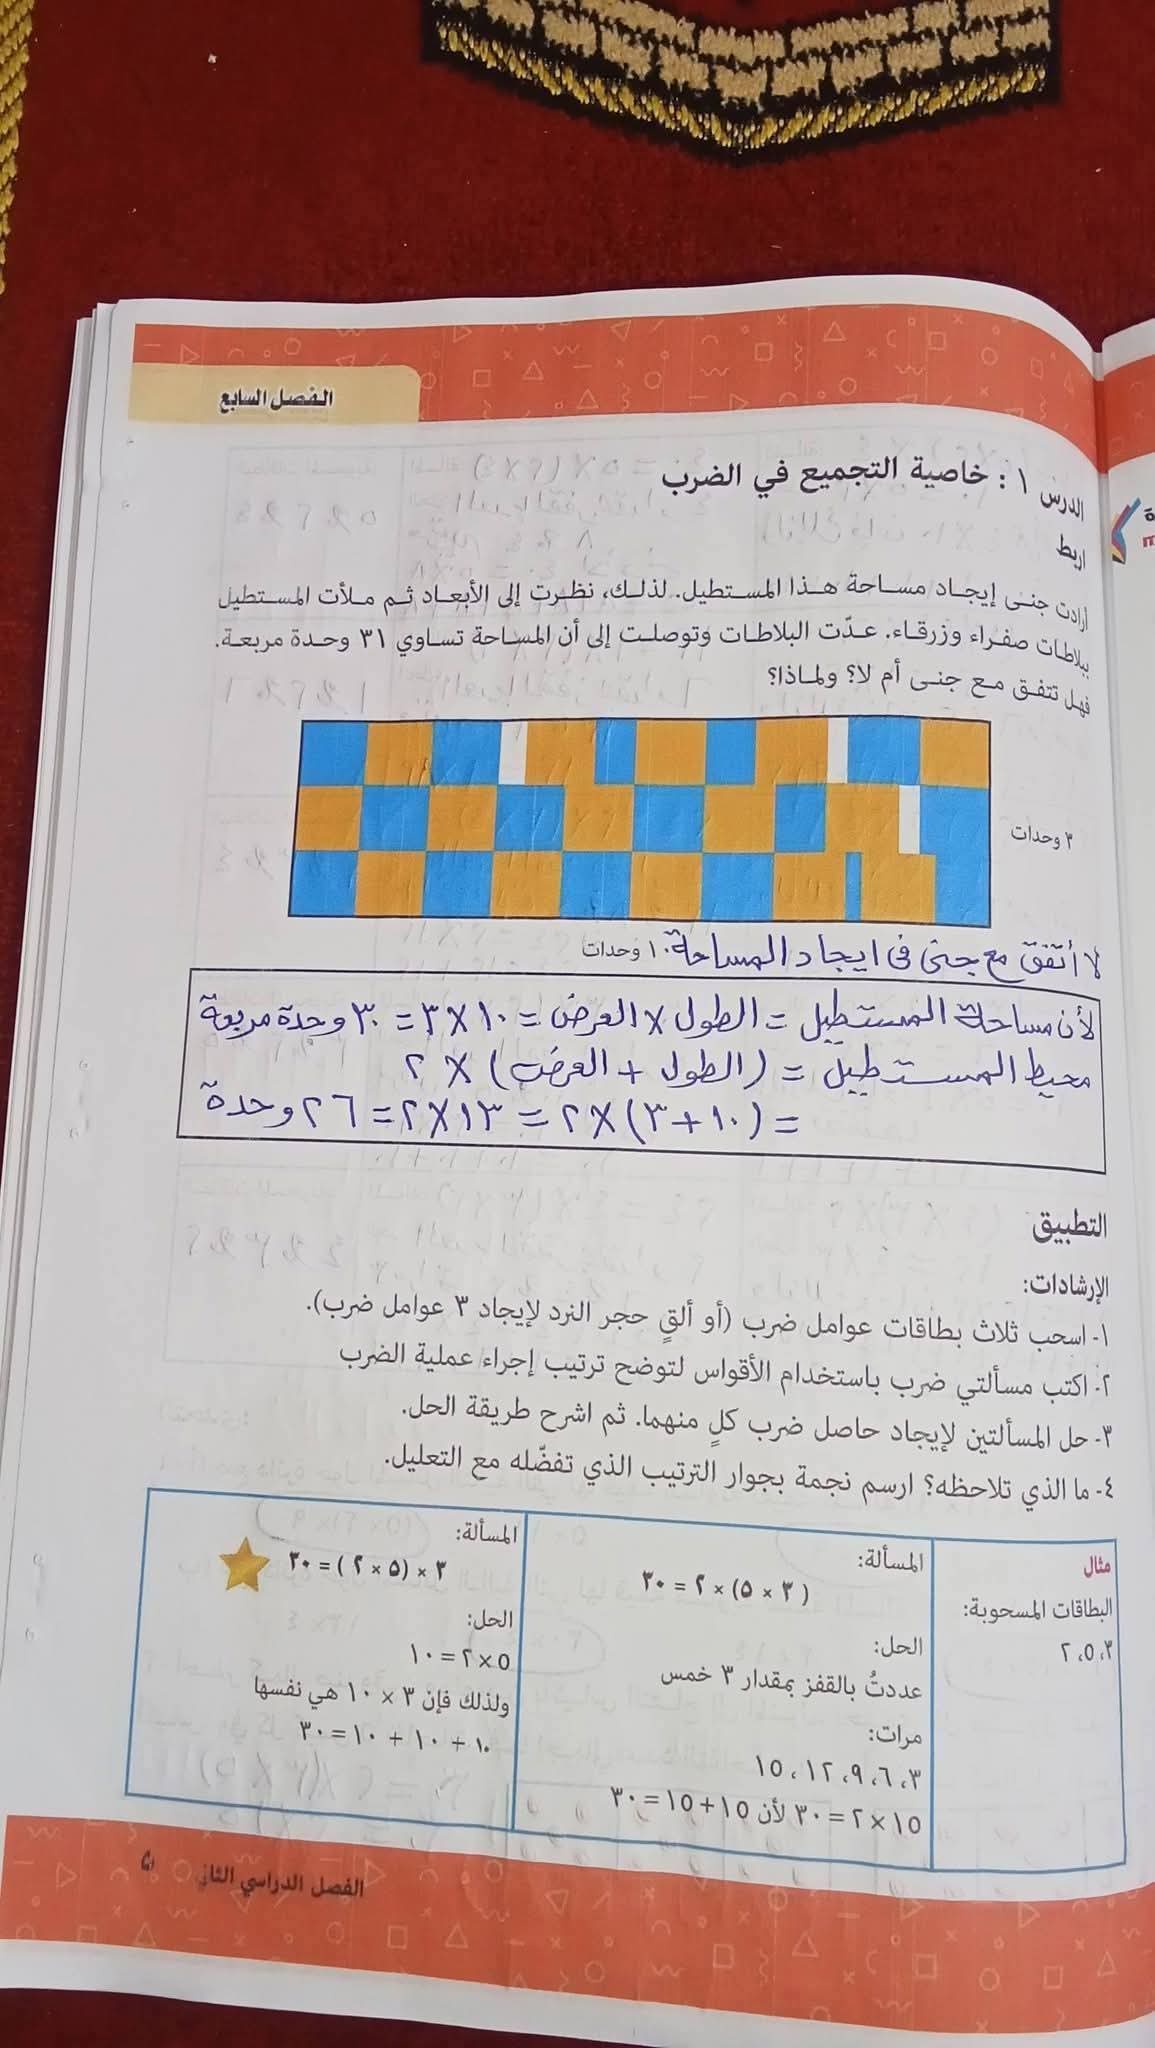 الفصل السابع
الدرس ١ : خاصية التجميع في الضرب
اربط
أرادت جنى إيجاد مساحة هذا المستطيل. لذلك، نظرت إلى الأبعاد ثم ملأت المستطيل
ببلاطات صفراء وزرقاء. عدّت البلاطات وتوصلت إلى أن المساحة تساوي ٣١ وحدة مربعة.
فهل تتفق مع جنى أم لا؟ ولماذا؟
٣ وحدات
١٠ وحدات
لا أتفق مع جنى فى ايجاد المساحة
لأن مساحة المستطيل = الطول × العرض = ١٠ × ٣ = ٣٠ وحدة مربعة
محيط المستطيل = (الطول + العرض) × ٢
= (١٠ + ٣) × ٢ = ١٣ × ٢ = ٢٦ وحدة
التطبيق
الإرشادات:
١- اسحب ثلاث بطاقات عوامل ضرب (أو ألقِ حجر النرد لإيجاد ٣ عوامل ضرب).
٢- اكتب مسألتي ضرب باستخدام الأقواس لتوضح ترتيب إجراء عملية الضرب
٣- حل المسألتين لإيجاد حاصل ضرب كلٍ منهما. ثم اشرح طريقة الحل.
٤- ما الذي تلاحظه؟ ارسم نجمة بجوار الترتيب الذي تفضّله مع التعليل.
مثال
البطاقات المسحوبة:
٣، ٥، ٢
المسألة:
(٣ × ٥) × ٢ = ٣٠
الحل:
عددتُ بالقفز بمقدار ٣ خمس
مرات:
٣، ٦، ٩، ١٢، ١٥
١٥ × ٢ = ٣٠ لأن ١٥ + ١٥ = ٣٠
المسألة:
٣ × (٥ × ٢) = ٣٠
الحل:
٥ × ٢ = ١٠
ولذلك فإن ٣ × ١٠ هي نفسها
١٠ + ١٠ + ١٠ = ٣٠
الفصل الدراسي الثاني